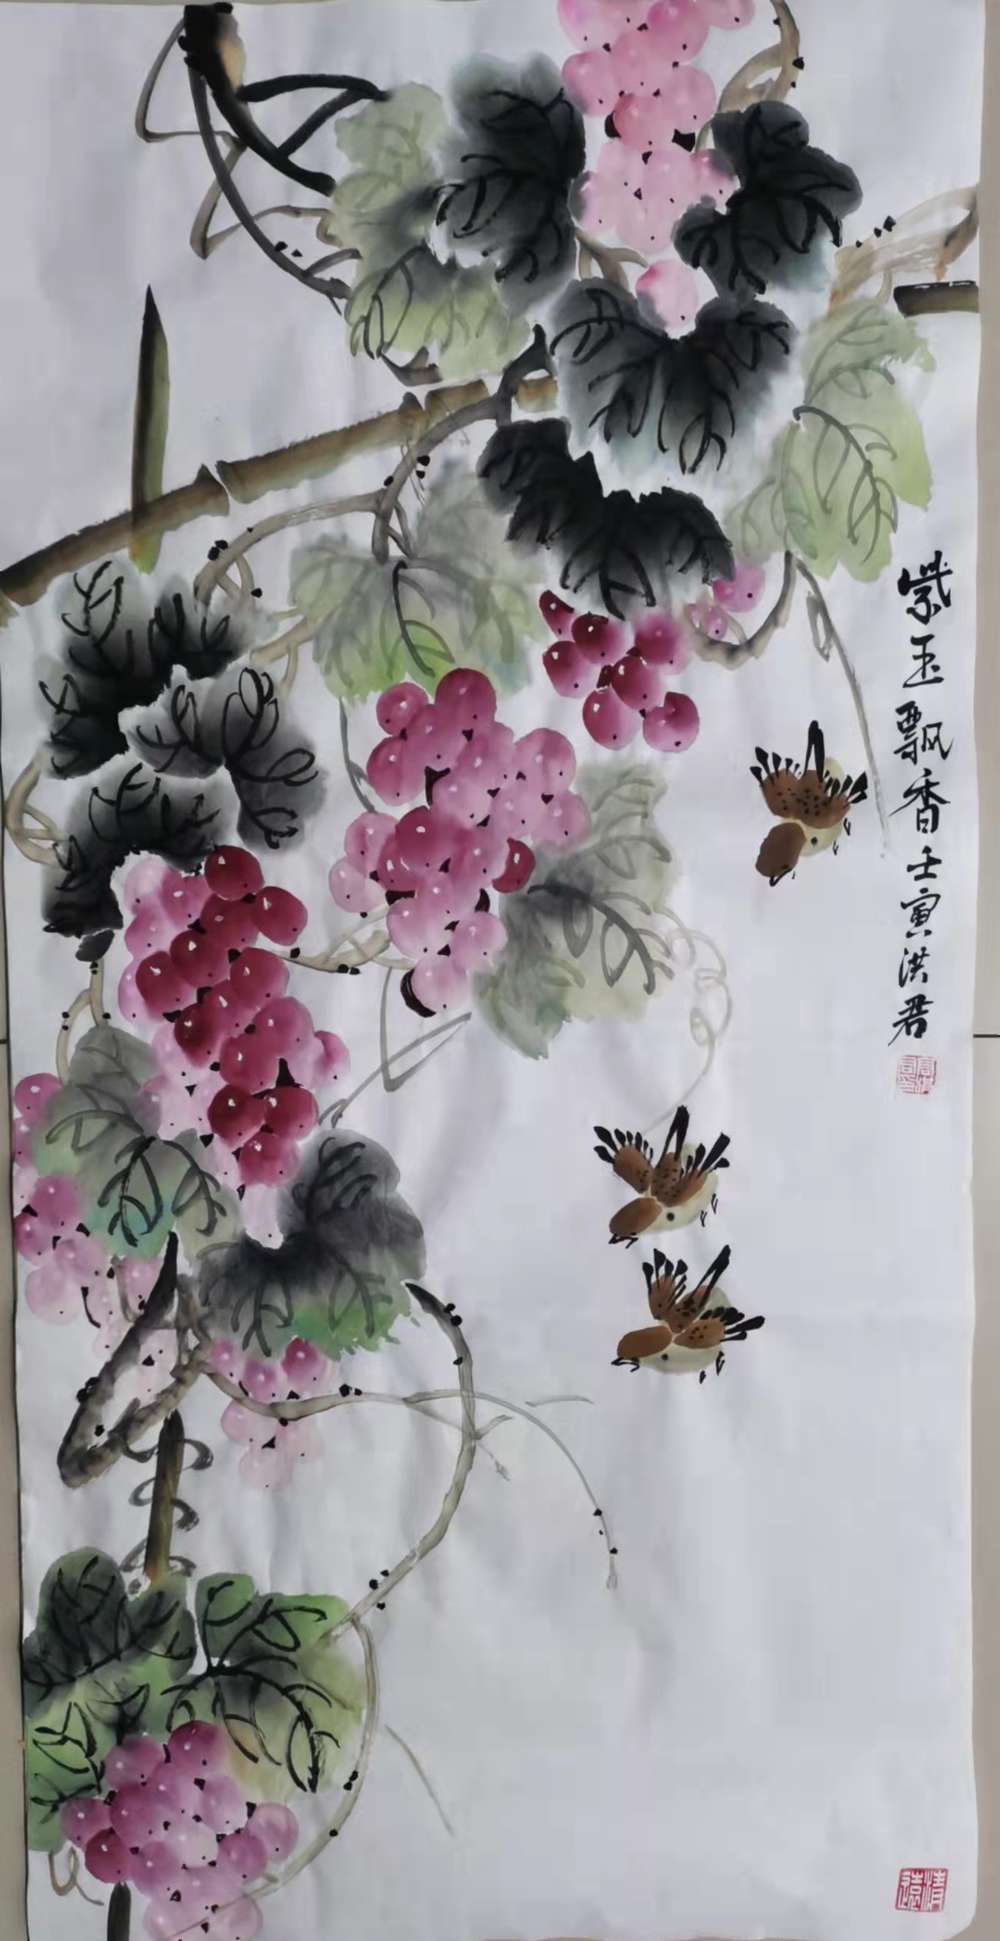 紫玉飘香壬寅洪君
清遠